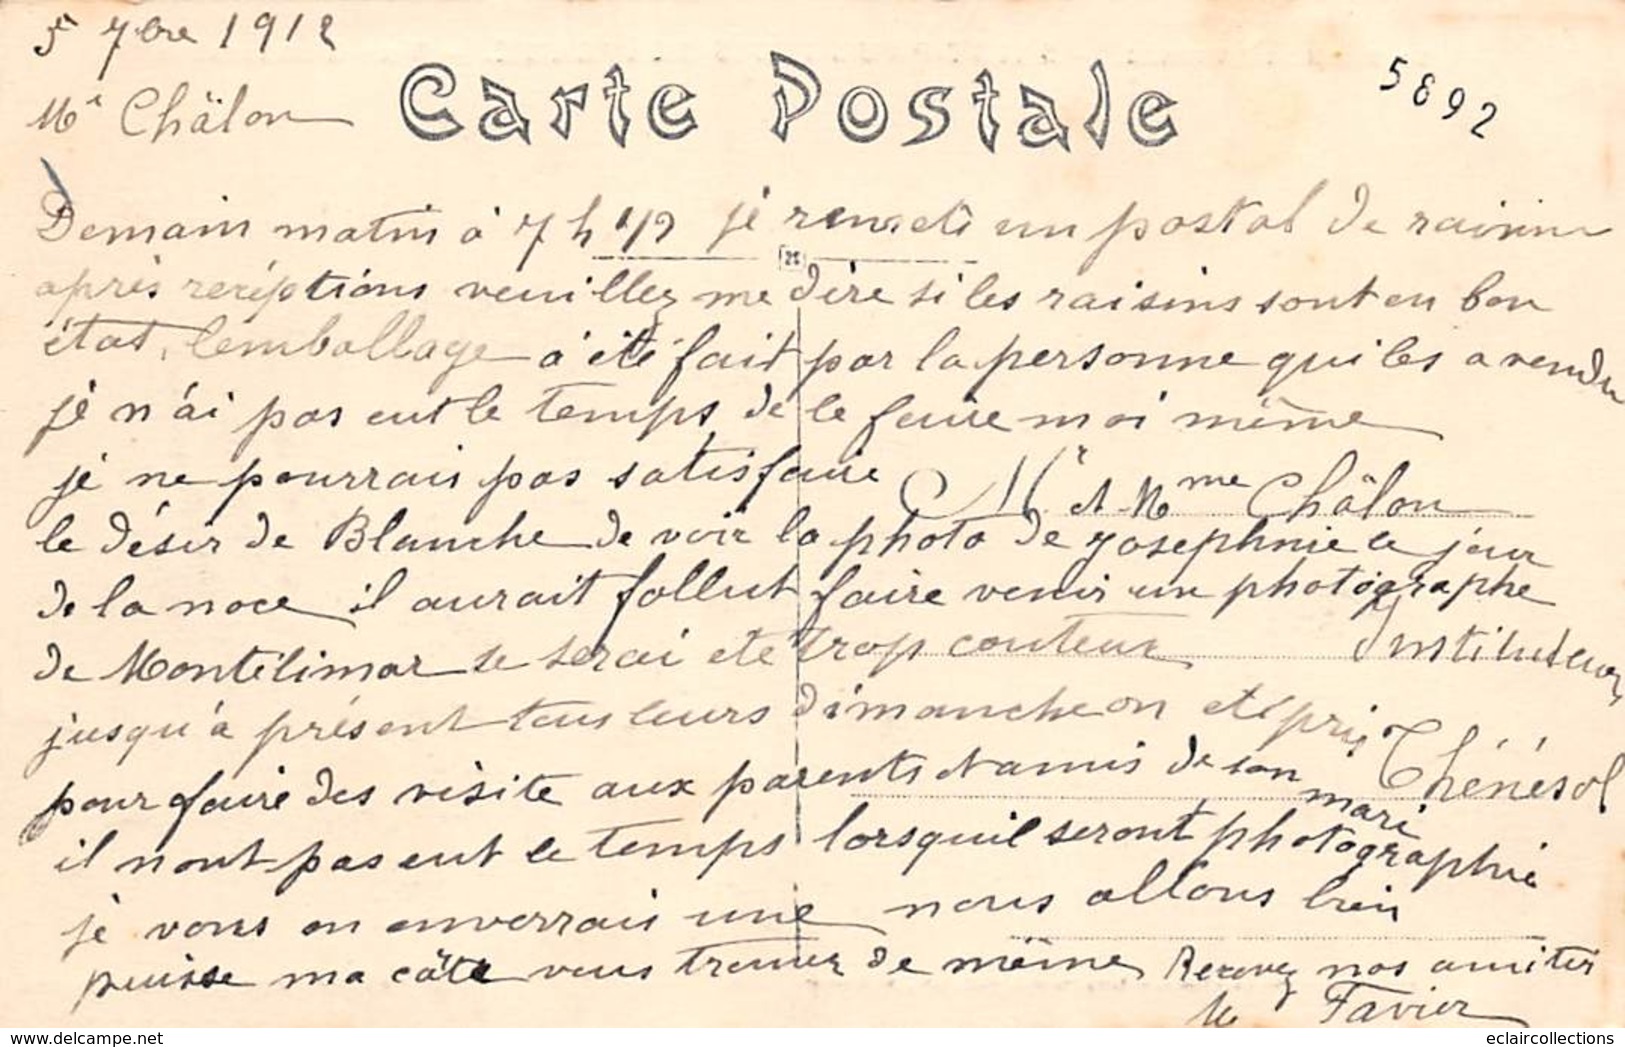 5 7bre 1912
Carte Postale
5892
Mr Châlon
Demain matin à 7 h 1/2 je remets un postal de raisin
après reréptions veuillez me dire si les raisins sont en bon
état, l'emballage a été fait par la personne qui les a vendu
je n'ai pas eut le temps de le faire moi même
je ne pourrais pas satisfaire
Mr et Mme Châlon
le désir de Blanche de voir la photo de Josephine le jour
de la noce il aurait fallut faire venir un photographe
Instituteur
de Montélimar se serai été trop couteux
jusqu'à présent tous leurs dimanche on été pris
Thénésol
pour faire des visite aux parents et amis de son mari
il nont pas eut le temps lorsquil seront photographié
je vous en enverrais une nous allons bien
puisse ma câte vous trouver de même Recevez nos amitiés
Mr Favier
eclaircollections